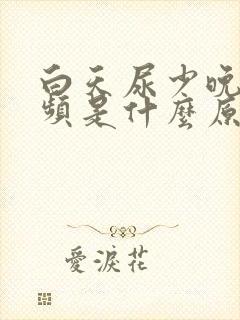 白天尿少晚
頻是什麼原
愛淚花